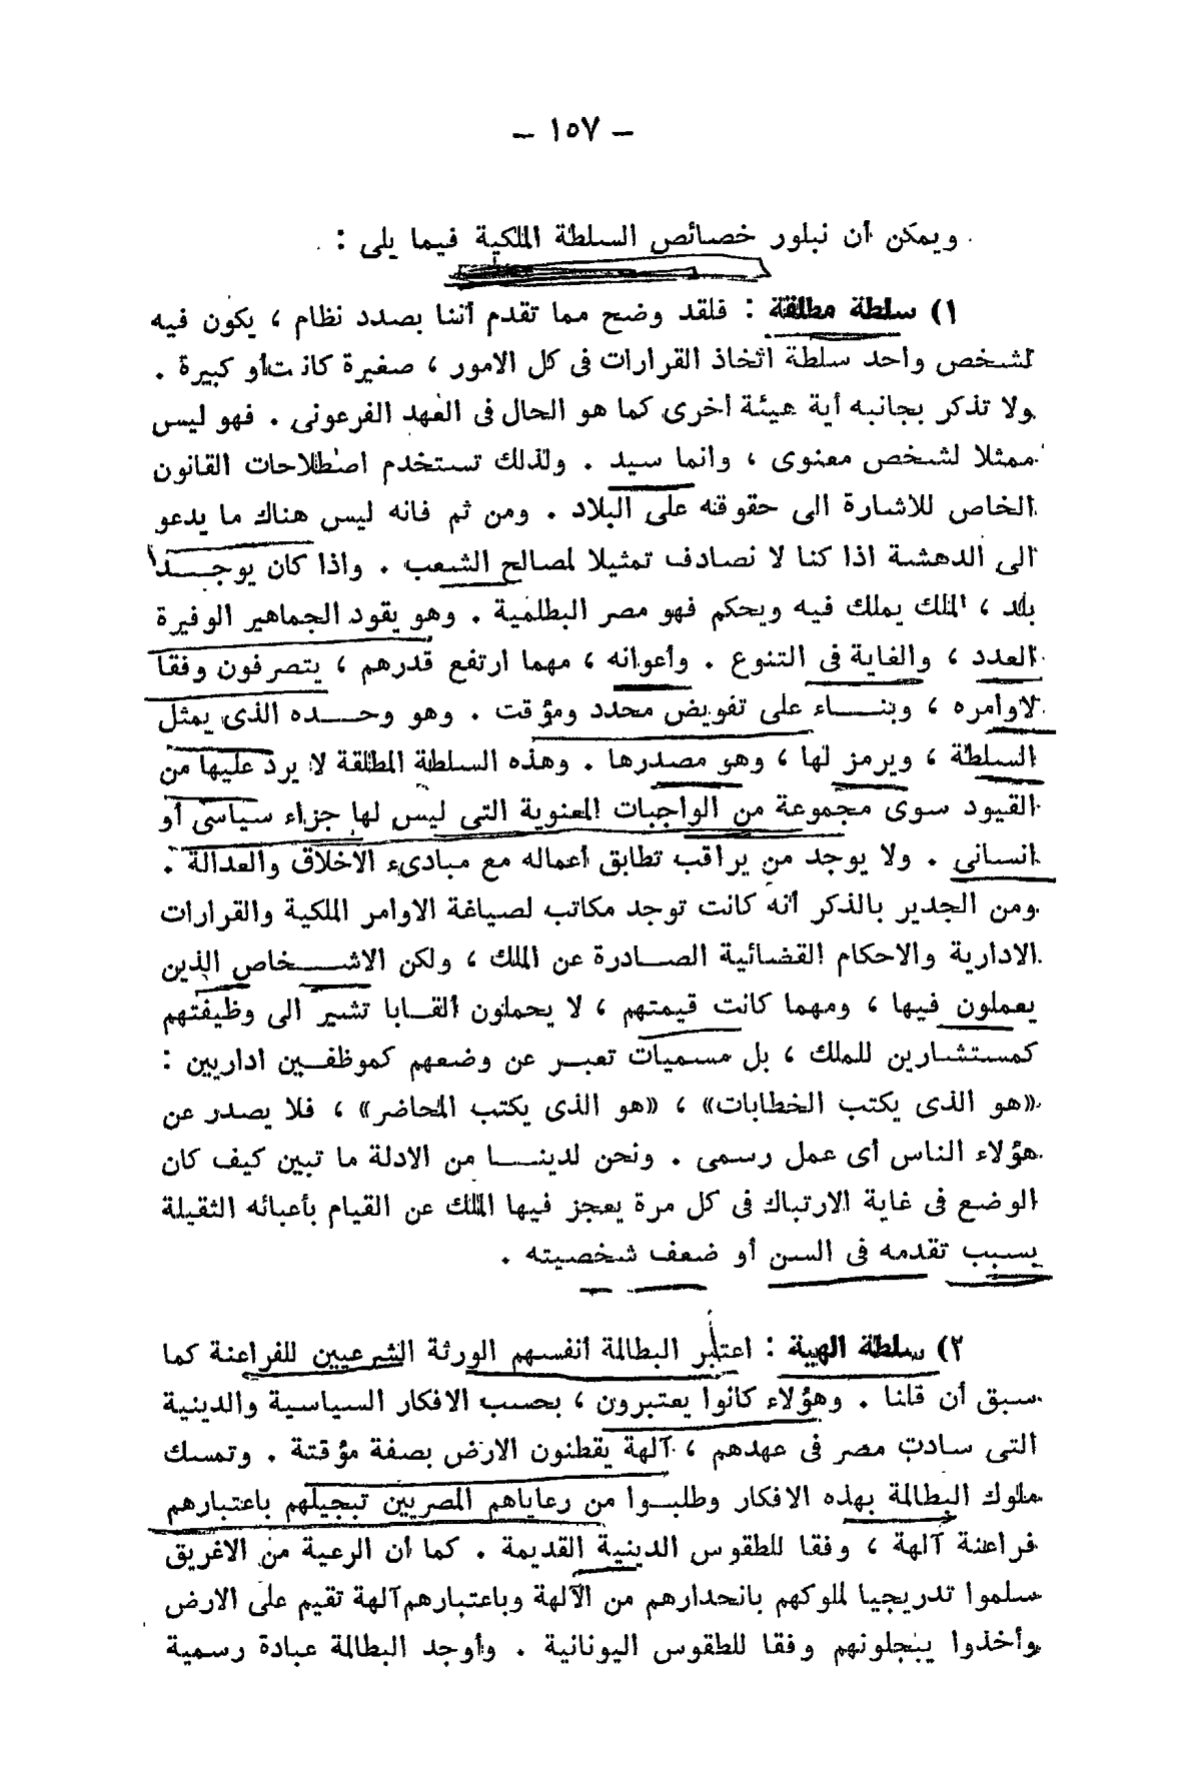 – ١٥٧ –
ويمكن أن نبلور خصائص السلطة الملكية فيما يلى :
١) سلطة مطلقة : فلقد وضح مما تقدم أننا بصدد نظام ، يكون فيه
لشخص واحد سلطة اتخاذ القرارات فى كل الامور ، صغيرة كانت أو كبيرة .
ولا تذكر بجانبه أية هيئة أخرى كما هو الحال فى العهد الفرعونى . فهو ليس
ممثلا لشخص معنوى ، وانما سيد . ولذلك تستخدم اصطلاحات القانون
الخاص للاشارة الى حقوقه على البلاد . ومن ثم فانه ليس هناك ما يدعو
الى الدهشة اذا كنا لا نصادف تمثيلا لمصالح الشعب . واذا كان يوجــد
بلد ، الملك يملك فيه ويحكم فهو مصر البطلمية . وهو يقود الجماهير الوفيرة
العدد ، والغاية فى التنوع . وأعوانه ، مهما ارتفع قدرهم ، يتصرفون وفقا
لاوامره ، وبنــاء على تفويض محدد ومؤقت . وهو وحــده الذى يمثل
السلطة ، ويرمز لها ، وهو مصدرها . وهذه السلطة المطلقة لا يرد عليها من
القيود سوى مجموعة من الواجبات المعنوية التى ليس لها جزاء سياسى أو
انسانى . ولا يوجد من يراقب تطابق أعماله مع مبادىء الاخلاق والعدالة .
ومن الجدير بالذكر أنه كانت توجد مكاتب لصياغة الاوامر الملكية والقرارات
الادارية والاحكام القضائية الصــادرة عن الملك ، ولكن الاشــخاص الذين
يعملون فيها ، ومهما كانت قيمتهم ، لا يحملون ألقــابا تشير الى وظيفتهم
كمستشارين للملك ، بل مسميات تعبــر عن وضعهم كموظفــين اداريين :
«هو الذى يكتب الخطابات» ، «هو الذى يكتب المحاضر» ، فلا يصدر عن
هؤلاء الناس أى عمل رسمى . ونحن لدينــا من الادلة ما تبين كيف كان
الوضع فى غاية الارتباك فى كل مرة يعجز فيها الملك عن القيام بأعبائه الثقيلة
بسبب تقدمه فى السن أو ضعف شخصيته .
٢) سلطة الهية : اعتبر البطالمة أنفسهم الورثة الشرعيين للفراعنة كما
سبق أن قلنا . وهؤلاء كانوا يعتبرون ، بحسب الافكار السياسية والدينية
التى سادت مصر فى عهدهم ، آلهة يقطنون الارض بصفة مؤقتة . وتمسك
ملوك البطالمة بهذه الافكار وطلبــوا من رعاياهم المصريين تبجيلهم باعتبارهم
فراعنة آلهة ، وفقا للطقوس الدينية القديمة . كما أن الرعية من الاغريق
سلموا تدريجيا لملوكهم بانحدارهم من الآلهة وباعتبارهم آلهة تقيم على الارض
وأخذوا يبجلونهم وفقا للطقوس اليونانية . وأوجد البطالمة عبادة رسمية